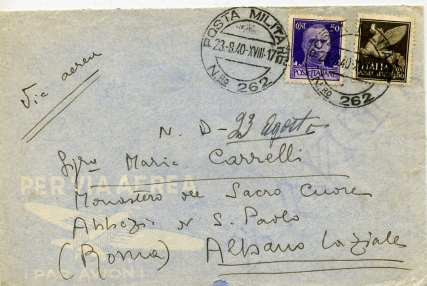 POSTA MILITARE
23-8-40-XVIII-17
N.RO 262
CENT 50
POSTE ITALIANE
ITALIA
N.RO 262
Via aerea
N. D- 23 Agosto
Sig.ra Maria Carrelli
PER VIA AEREA
Monastero del Sacro Cuore
Abbazia S. Paolo
(Roma) Albano Laziale
(PAR AVION)